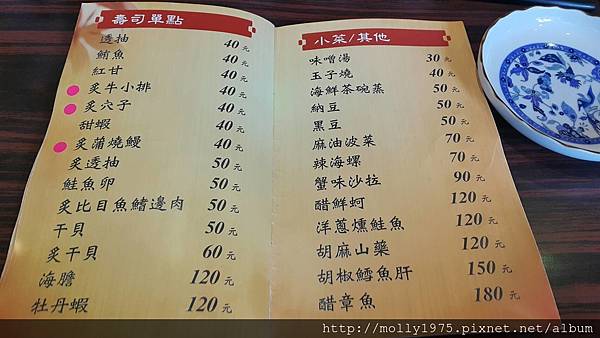 壽司單點
透抽 40元
鮪魚 40元
紅甘 40元
炙牛小排 40元
炙穴子 40元
甜蝦 40元
炙蒲燒鰻 40元
炙透抽 50元
鮭魚卵 50元
炙比目魚鰭邊肉 50元
干貝 50元
炙干貝 60元
海膽 120元
牡丹蝦 120元
小菜/其他
味噌湯 30元
玉子燒 40元
海鮮茶碗蒸 50元
納豆 50元
黑豆 50元
麻油波菜 70元
辣海螺 70元
蟹味沙拉 90元
醋鮮蚵 120元
洋蔥燻鮭魚 120元
胡麻山藥 120元
胡椒鱈魚肝 150元
醋章魚 180元
http://molly1975.pixnet.net/album